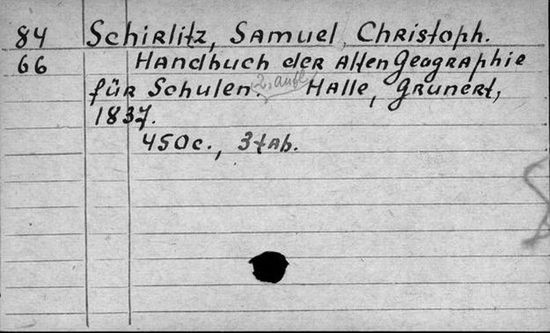 84 Schirlitz, Samuel Christoph.
66 Handbuch der Alten Geographie
für Schulen. 2. Aufl. Halle, Grunert,
1837.
450c., 3tab.